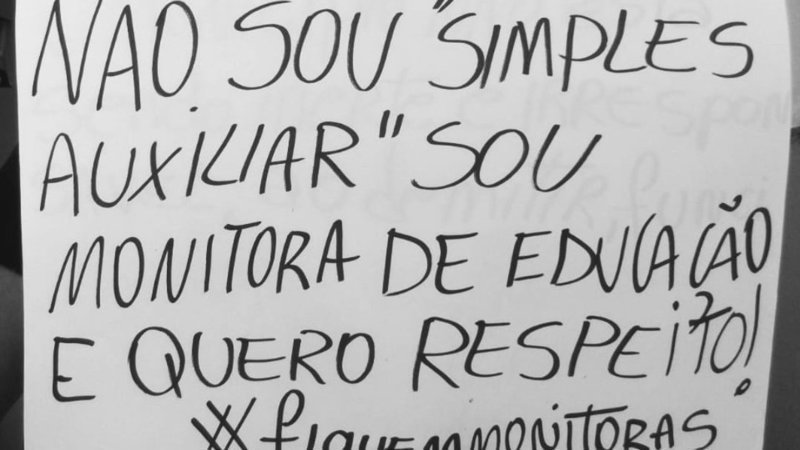 NÃO SOU "SIMPLES
AUXILIAR" SOU
MONITORA DE EDUCAÇÃO
E QUERO RESPEITO!
#fiquemmonitoras